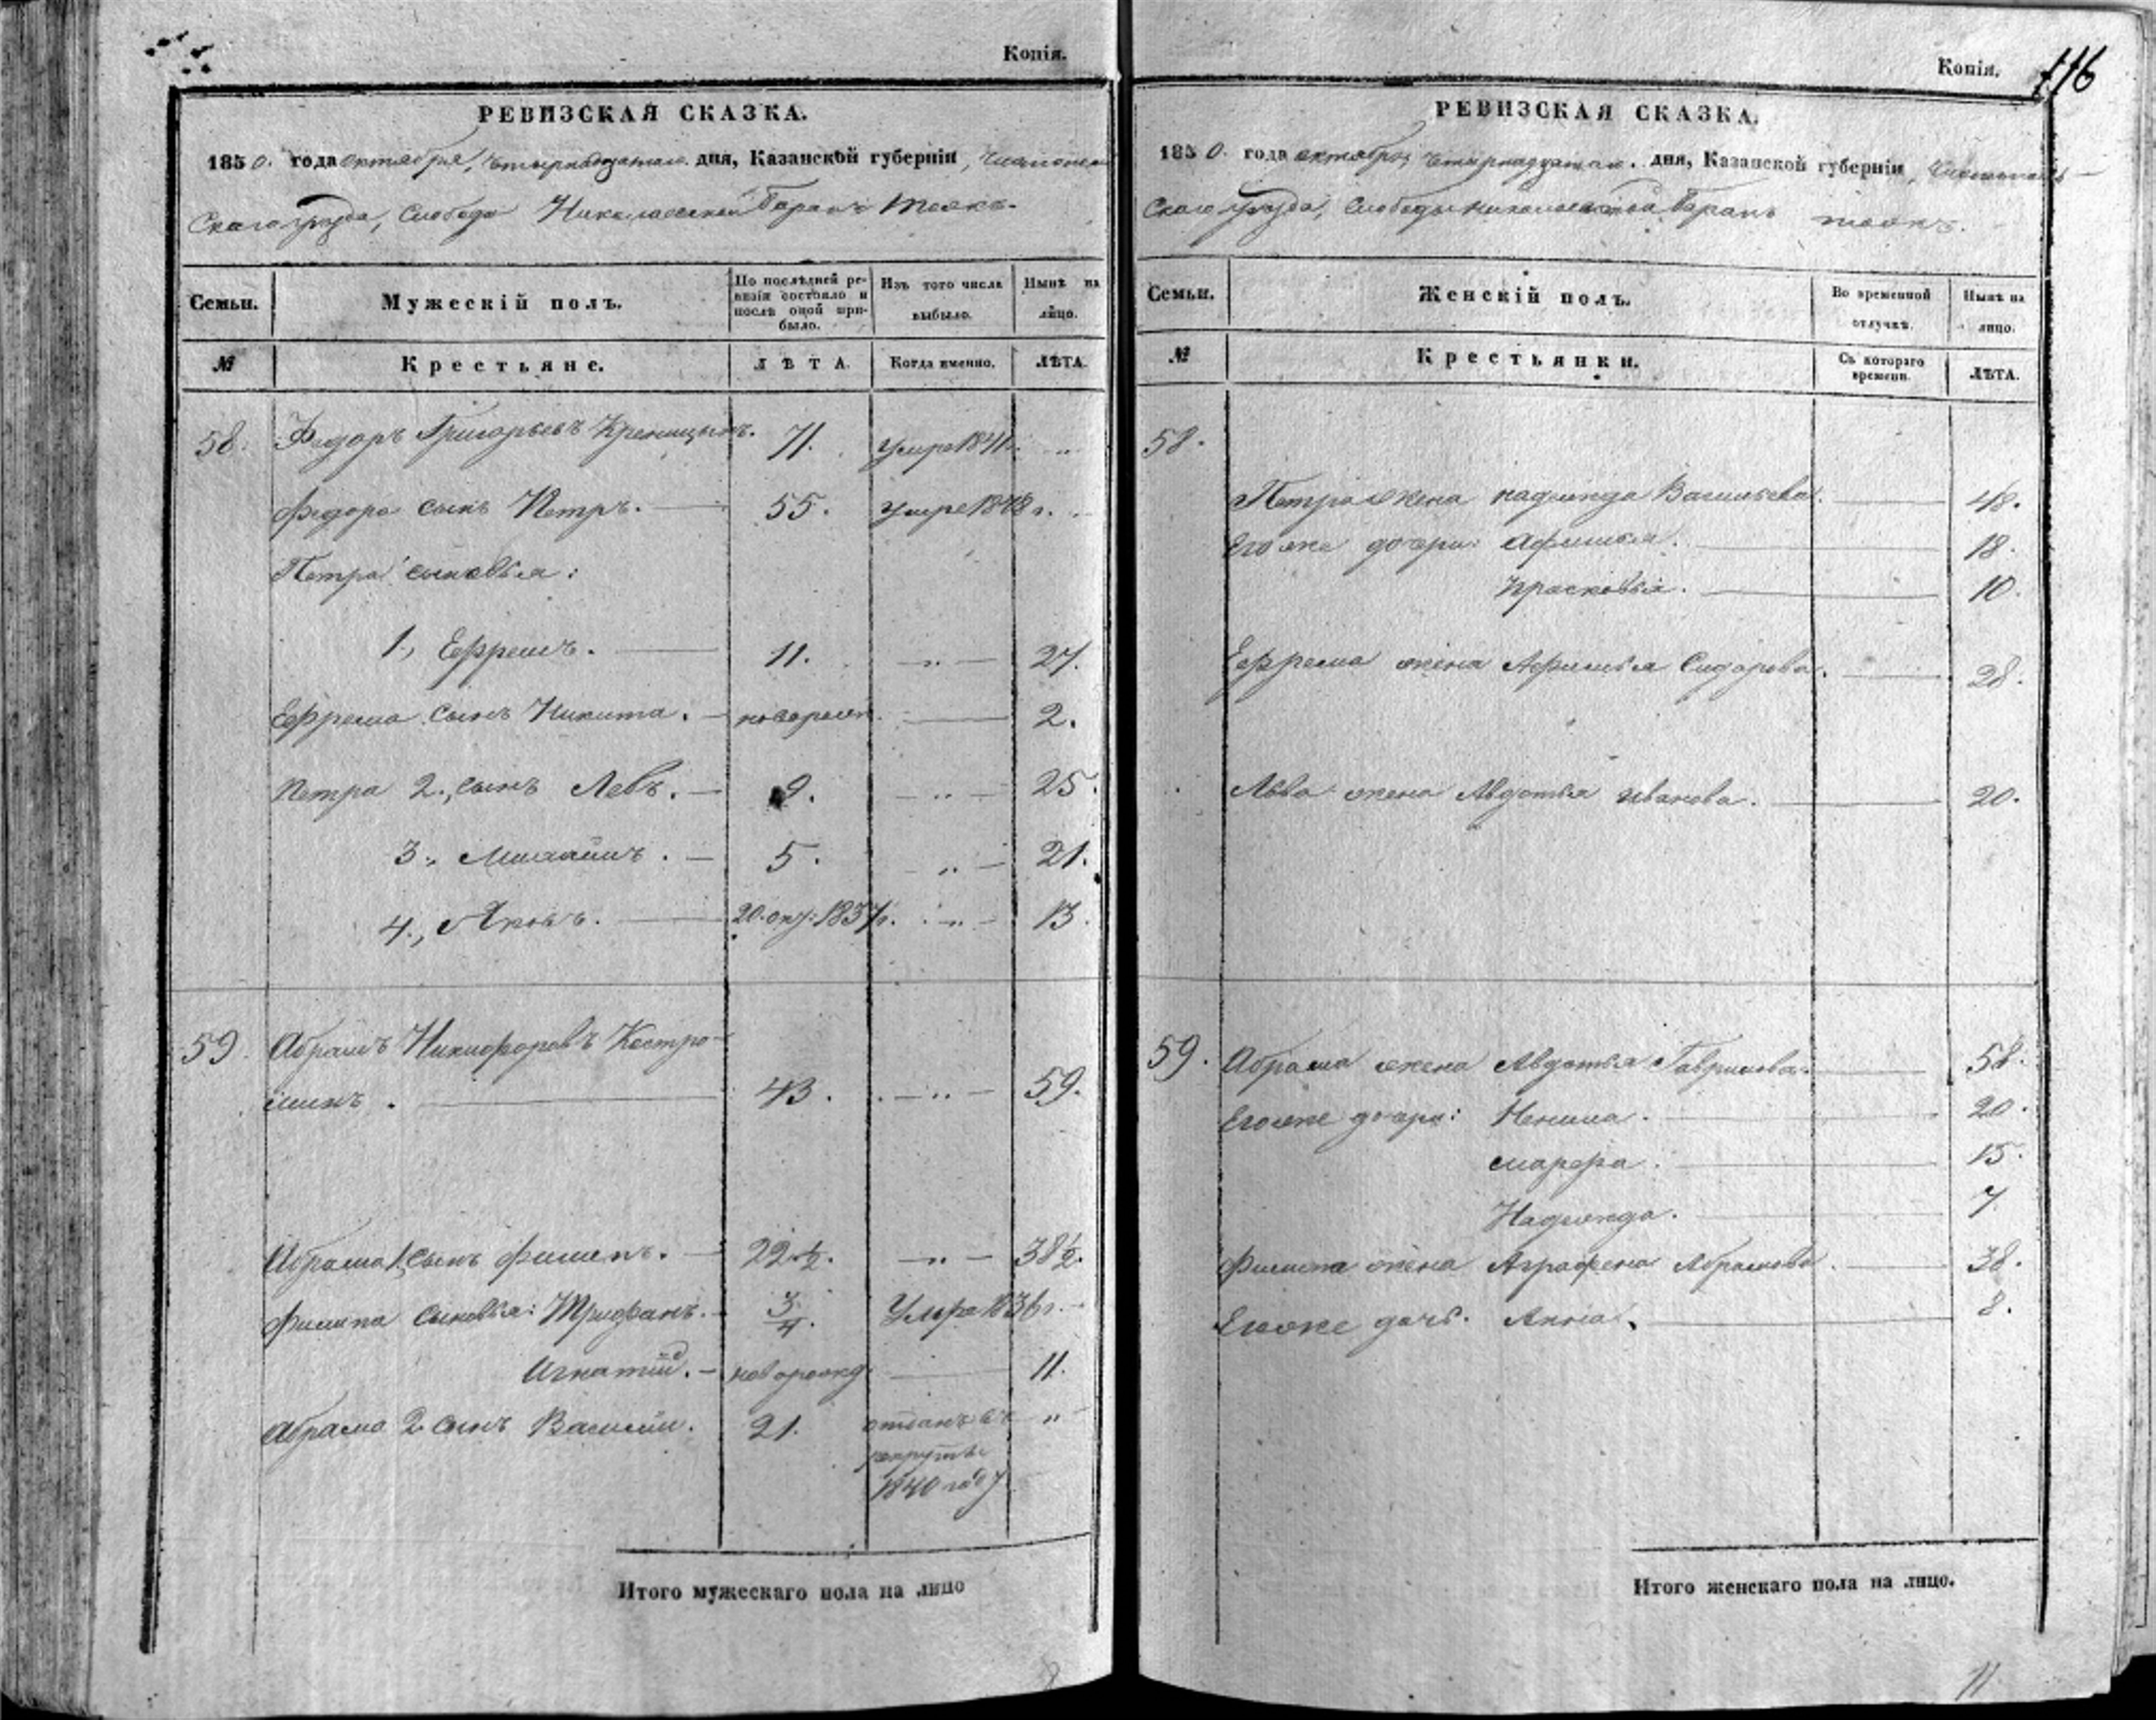 Копія.
РЕВИЗСКАЯ СКАЗКА.
1850. года октября, четырнадцатаго дня, Казанской губерніи, Чистополь
скаго уѣзда, Слободы Николаевской Баранъ тожъ.
Семьи.
Мужескій полъ.
По послѣдней ре-
визіи состояло и
послѣ оной при-
было.
Изъ того числа
выбыло.
Нынѣ на
лицо.
№
Крестьяне.
ЛѢТА.
Когда именно.
ЛѢТА.
58. Федоръ Григорьевъ 71. Умре 1841 г. "
Федора сынъ Петръ. 55. Умре 1848 г.
Петра сыновья:
1., Ефремъ. 11. " 27.
Ефрема сынъ Никита. новорожд. 2.
Петра 2., сынъ Левъ. 9. " 25.
3., Михаилъ. 5. " 21.
4., Яковъ. 20. окт: 1837 г. " 13.
59. Абрамъ Никифоровъ Костро-
минъ. 43. " 59.
Абрама 1, сынъ Филипъ. 22 ½. " 38 ½.
Филипа сыновья: Трифанъ. ¾. Умре 1836 г.
Игнатій. новорожд. 11.
Абрама 2 сынъ Василий. 21. отданъ въ "
рекруты
1840 году
Итого мужескаго пола на лицо
Копія.
116
РЕВИЗСКАЯ СКАЗКА.
1850. года октября, четырнадцатаго. дня, Казанской губерніи, Чистополь-
скаго уѣзда, Слободы Николаевской Баранъ тожъ.
Семьи.
Женскій полъ.
Во временной
отлучкѣ.
Нынѣ на
лицо.
№
Крестьянки.
Съ котораго
времени.
ЛѢТА.
58.
Петра жена надежда Васильева. 48.
Его же дочери: Афимья. 18.
Прасковья. 10.
Ефрема жена Афимья Сидорова. 28.
Льва жена Авдотья Иванова. 20.
59. Абрама жена Авдотья Гаврилова. 58.
Его же дочери: Ненила. 20.
марфа. 15.
Надежда. 7.
Филипа жена Аграфена Абрамова. 38.
Его же дочь. Анна. 8.
Итого женскаго пола на лицо.
11